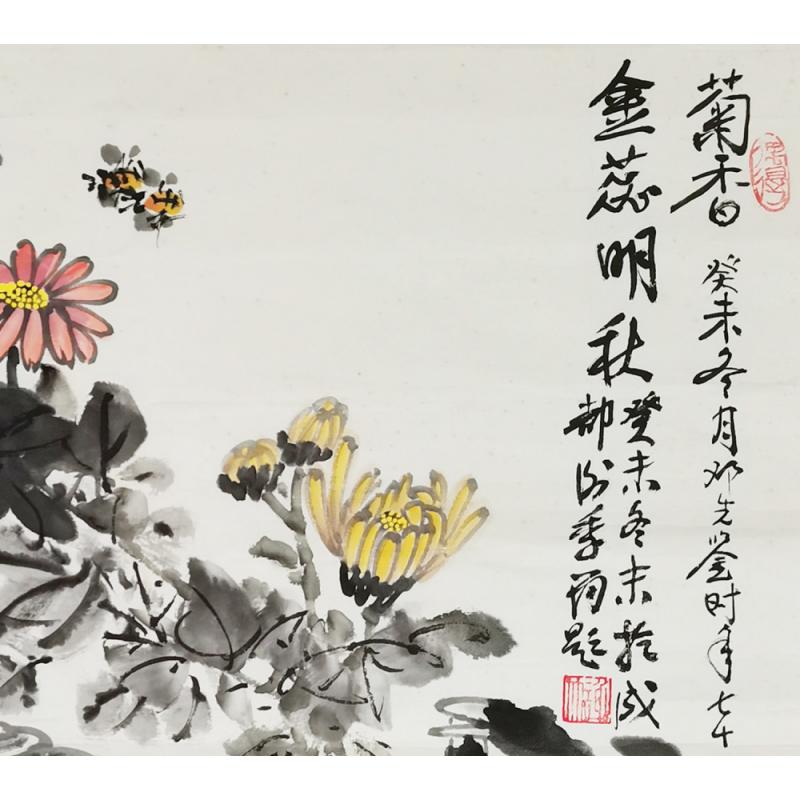 菊香 癸未冬月邓先鉴时年七十
金蕊明秋
癸未冬末于成
都 季 题